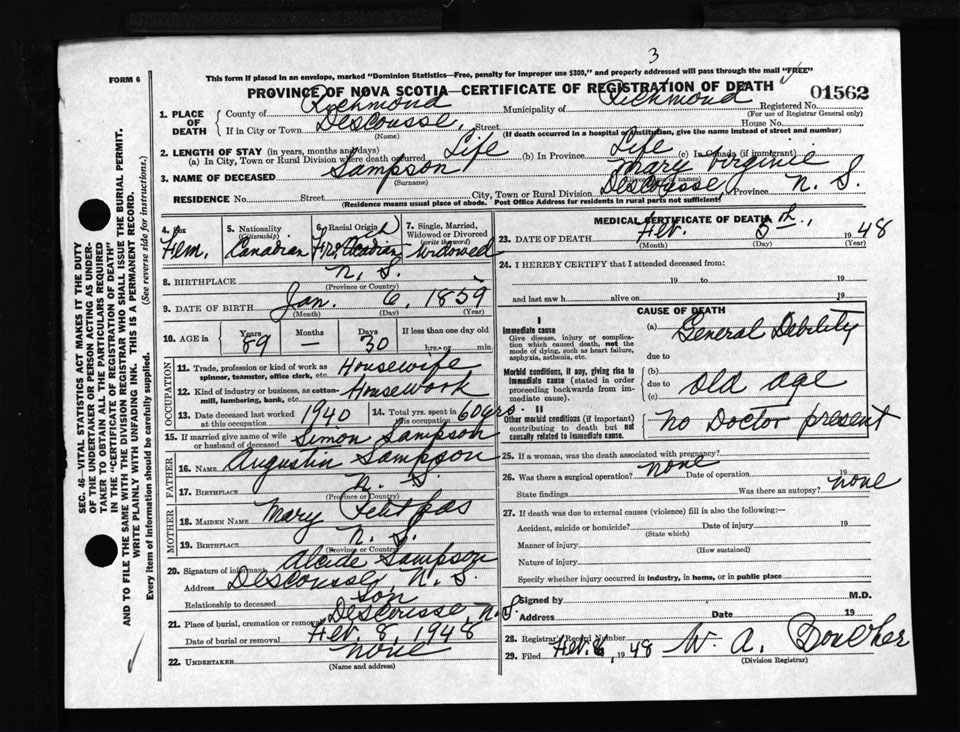 3
FORM 6
This form if placed in an envelope, marked "Dominion Statistics—Free, penalty for improper use $300," and properly addressed will pass through the mail "FREE"
PROVINCE OF NOVA SCOTIA—CERTIFICATE OF REGISTRATION OF DEATH
01562
1. PLACE OF DEATH { County of Richmond Municipality of Richmond Registered No.
(For use of Registrar General only)
If in City or Town Descousse, Street House No.
(Name) (If death occurred in a hospital or institution, give the name instead of street and number)
2. LENGTH OF STAY (in years, months and days)
(a) In City, Town or Rural Division where death occurred Life (b) In Province Life (c) In Canada (if immigrant)
3. NAME OF DECEASED Sampson Mary Virginie
(Surname) (Given name or names)
RESIDENCE No. Street City, Town or Rural Division Descousse, Province N. S.
(Residence means usual place of abode. Post Office Address for residents in rural parts not sufficient)
4. Sex Fem.
5. Nationality (Citizenship) Canadian
6. Racial Origin Fr. Acadian
7. Single, Married, Widowed or Divorced (write the word) Widowed
8. BIRTHPLACE N. S.
(Province or Country)
9. DATE OF BIRTH Jan. 6, 1859
(Month) (Day) (Year)
10. AGE in { Years 89 Months — Days 30 If less than one day old
hrs. or min.
OCCUPATION
11. Trade, profession or kind of work as spinner, teamster, office clerk, etc. Housewife
12. Kind of industry or business, as cotton-mill, lumbering, bank, etc. Housework
13. Date deceased last worked at this occupation 1940
14. Total yrs. spent in this occupation 60 yrs.
15. If married give name of wife or husband of deceased Simon Sampson
FATHER
16. NAME Augustin Sampson
17. BIRTHPLACE N. S.
(Province or Country)
MOTHER
18. MAIDEN NAME Mary Petitpas
19. BIRTHPLACE N. S.
(Province or Country)
20. Signature of informant Alcide Sampson
Address Descousse, N. S.
Relationship to deceased Son
21. Place of burial, cremation or removal Descousse, N. S.
Date of burial or removal Feb. 8, 1948
22. UNDERTAKER none
(Name and address)
MEDICAL CERTIFICATE OF DEATH
23. DATE OF DEATH Feb. 5th., 1948
(Month) (Day) (Year)
24. I HEREBY CERTIFY that I attended deceased from:
19 to 19
and last saw h alive on 19
CAUSE OF DEATH
I
Immediate cause
Give disease, injury or complication which caused death, not the mode of dying, such as heart failure, asphyxia, asthenia, etc.
(a) General Debility
due to
Morbid conditions, if any, giving rise to immediate cause (stated in order proceeding backwards from immediate cause).
(b)
due to old age
(c)
II
Other morbid conditions (if important) contributing to death but not causally related to immediate cause.
No Doctor present
25. If a woman, was the death associated with pregnancy?
26. Was there a surgical operation? none Date of operation 19
State findings Was there an autopsy? none
27. If death was due to external causes (violence) fill in also the following:—
Accident, suicide or homicide? Date of injury 19
(State which)
Manner of injury
(How sustained)
Nature of injury
Specify whether injury occurred in industry, in home, or in public place
Signed by M.D.
Address Date 19
28. Registrar's Record Number
29. Filed Feb. 6, 1948 W. A. Boucher
(Division Registrar)
SEC. 46—VITAL STATISTICS ACT MAKES IT THE DUTY
OF THE UNDERTAKER OR PERSON ACTING AS UNDER-
TAKER TO OBTAIN ALL THE PARTICULARS REQUIRED
IN THE "CERTIFICATE OF REGISTRATION OF DEATH"
AND TO FILE THE SAME WITH THE DIVISION REGISTRAR WHO SHALL ISSUE THE BURIAL PERMIT.
WRITE PLAINLY WITH UNFADING INK. THIS IS A PERMANENT RECORD.
Every item of information should be carefully supplied. (See reverse side for instructions.)